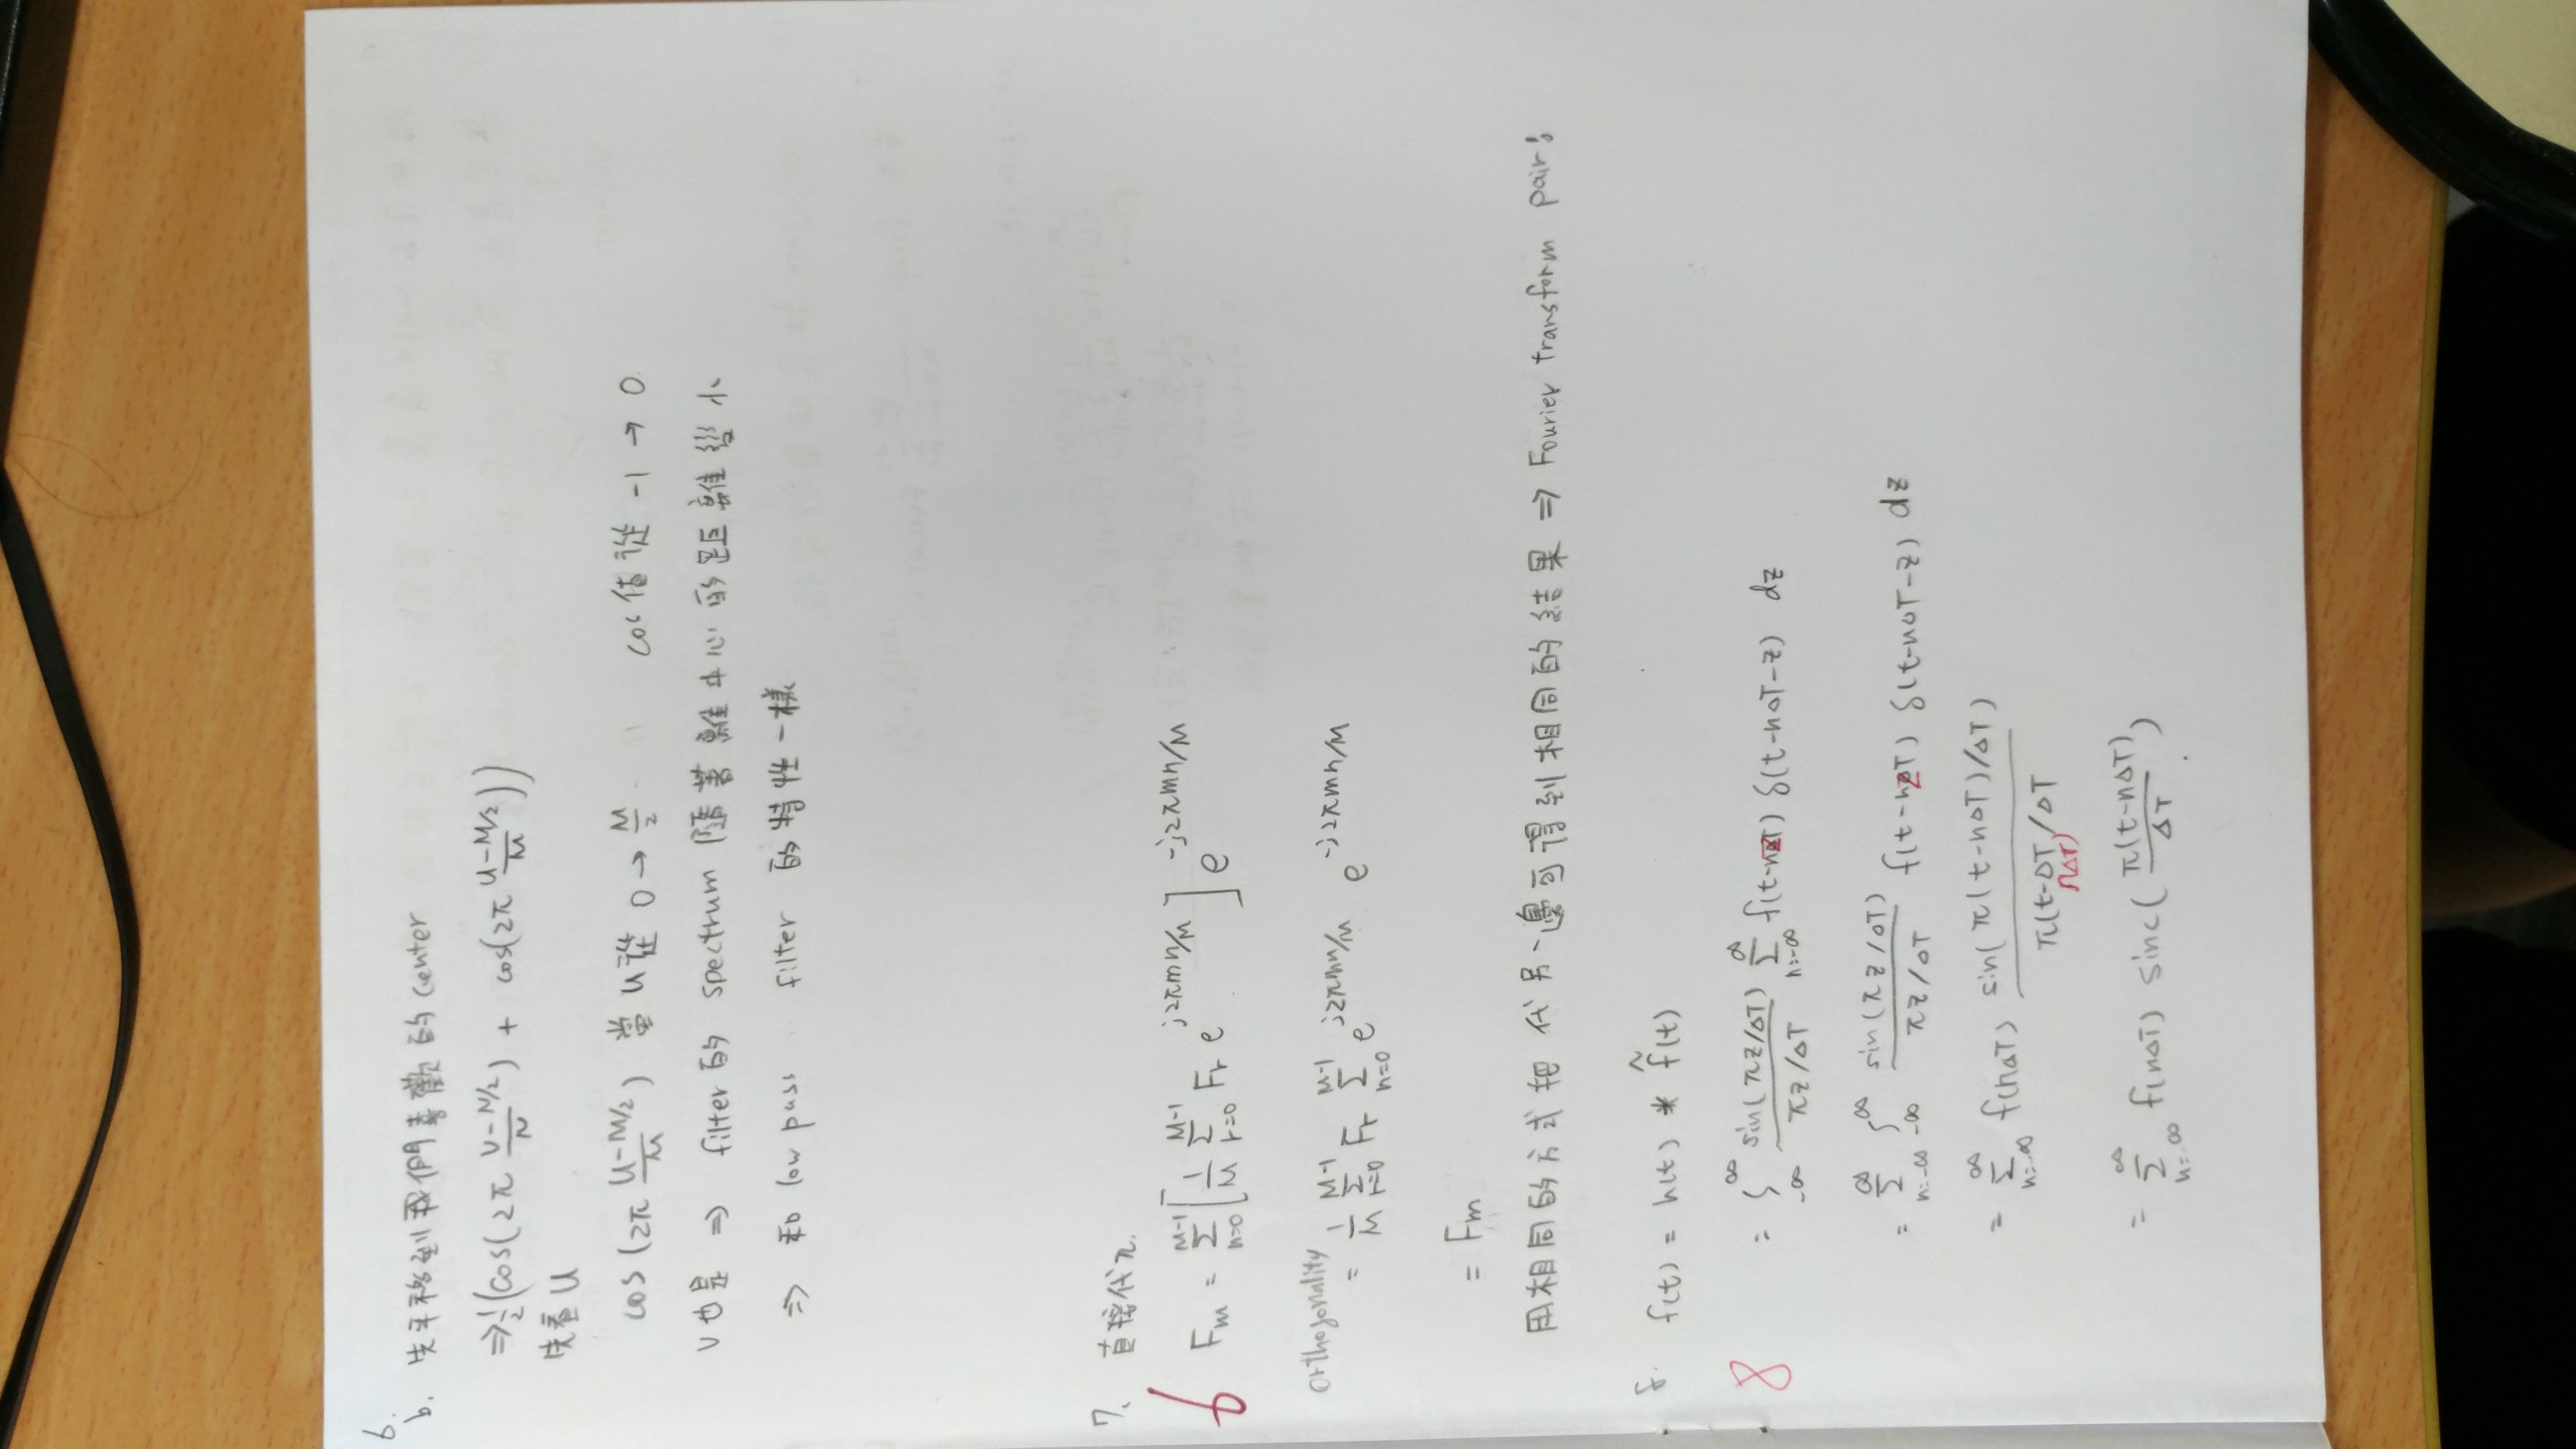 6.
b. 先平移到我們喜歡的 center
⇒ 1/2 (cos(2π (V-N/2)/N) + cos(2π (U-M/2)/M))
先看 U
cos(2π (U-M/2)/M) 當 U 從 0 → M/2 cos 值從 -1 → 0
V 也是 ⇒ filter 的 spectrum 隨著離中心的距離變小
⇒ 和 low pass filter 的特性一樣
7. 直接代入
6
Fm = Σ_{n=0}^{M-1} [ 1/M Σ_{r=0}^{M-1} Fr e^{j2πmn/M} ] e^{-j2πmn/M}
orthogonality
= 1/M Σ_{r=0}^{M-1} Fr Σ_{n=0}^{M-1} e^{j2πmn/M} e^{-j2πmn/M}
= Fm
用相同的方式把 代另一邊可得到相同的結果 ⇒ Fourier transform pair!
8. f(t) = h(t) * f̃(t)
8
= ∫_{-∞}^{∞} sin(πz/ΔT) / (πz/ΔT) Σ_{n=-∞}^{∞} f(t-zT) δ(t-nΔT-z) dz
= Σ_{n=-∞}^{∞} ∫_{-∞}^{∞} sin(πz/ΔT) / (πz/ΔT) f(t-zT) δ(t-nΔT-z) dz
= Σ_{n=-∞}^{∞} f(nΔT) sin(π(t-nΔT)/ΔT) / π(t-ΔT/ΔT
nΔT)
= Σ_{n=-∞}^{∞} f(nΔT) sinc(π(t-nΔT)/ΔT)